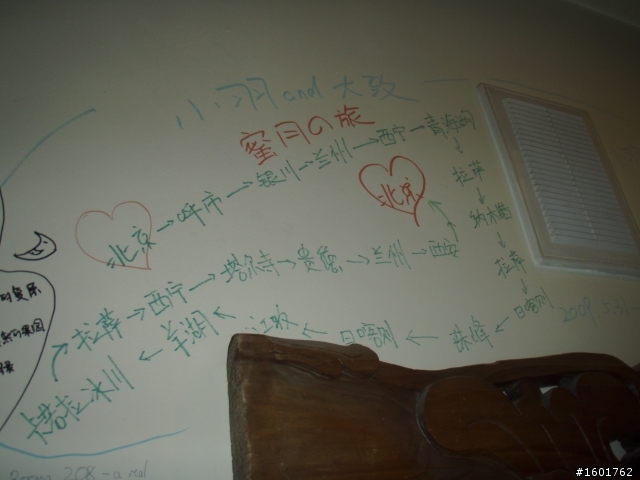 小羽 and 大致
蜜月の旅
北京 → 呼市 → 银川 → 兰州 → 西宁 → 青海湖
→ 拉萨
→ 纳木错
→ 拉萨
→ 日喀则
→ 珠峰
← 日喀则
← 江孜
← 羊湖
← 卡若拉冰川
拉萨 → 西宁 → 塔尔寺 → 贵德 → 兰州 → 西安
北京
2009.5.31
Room 208 - a real
#1601762